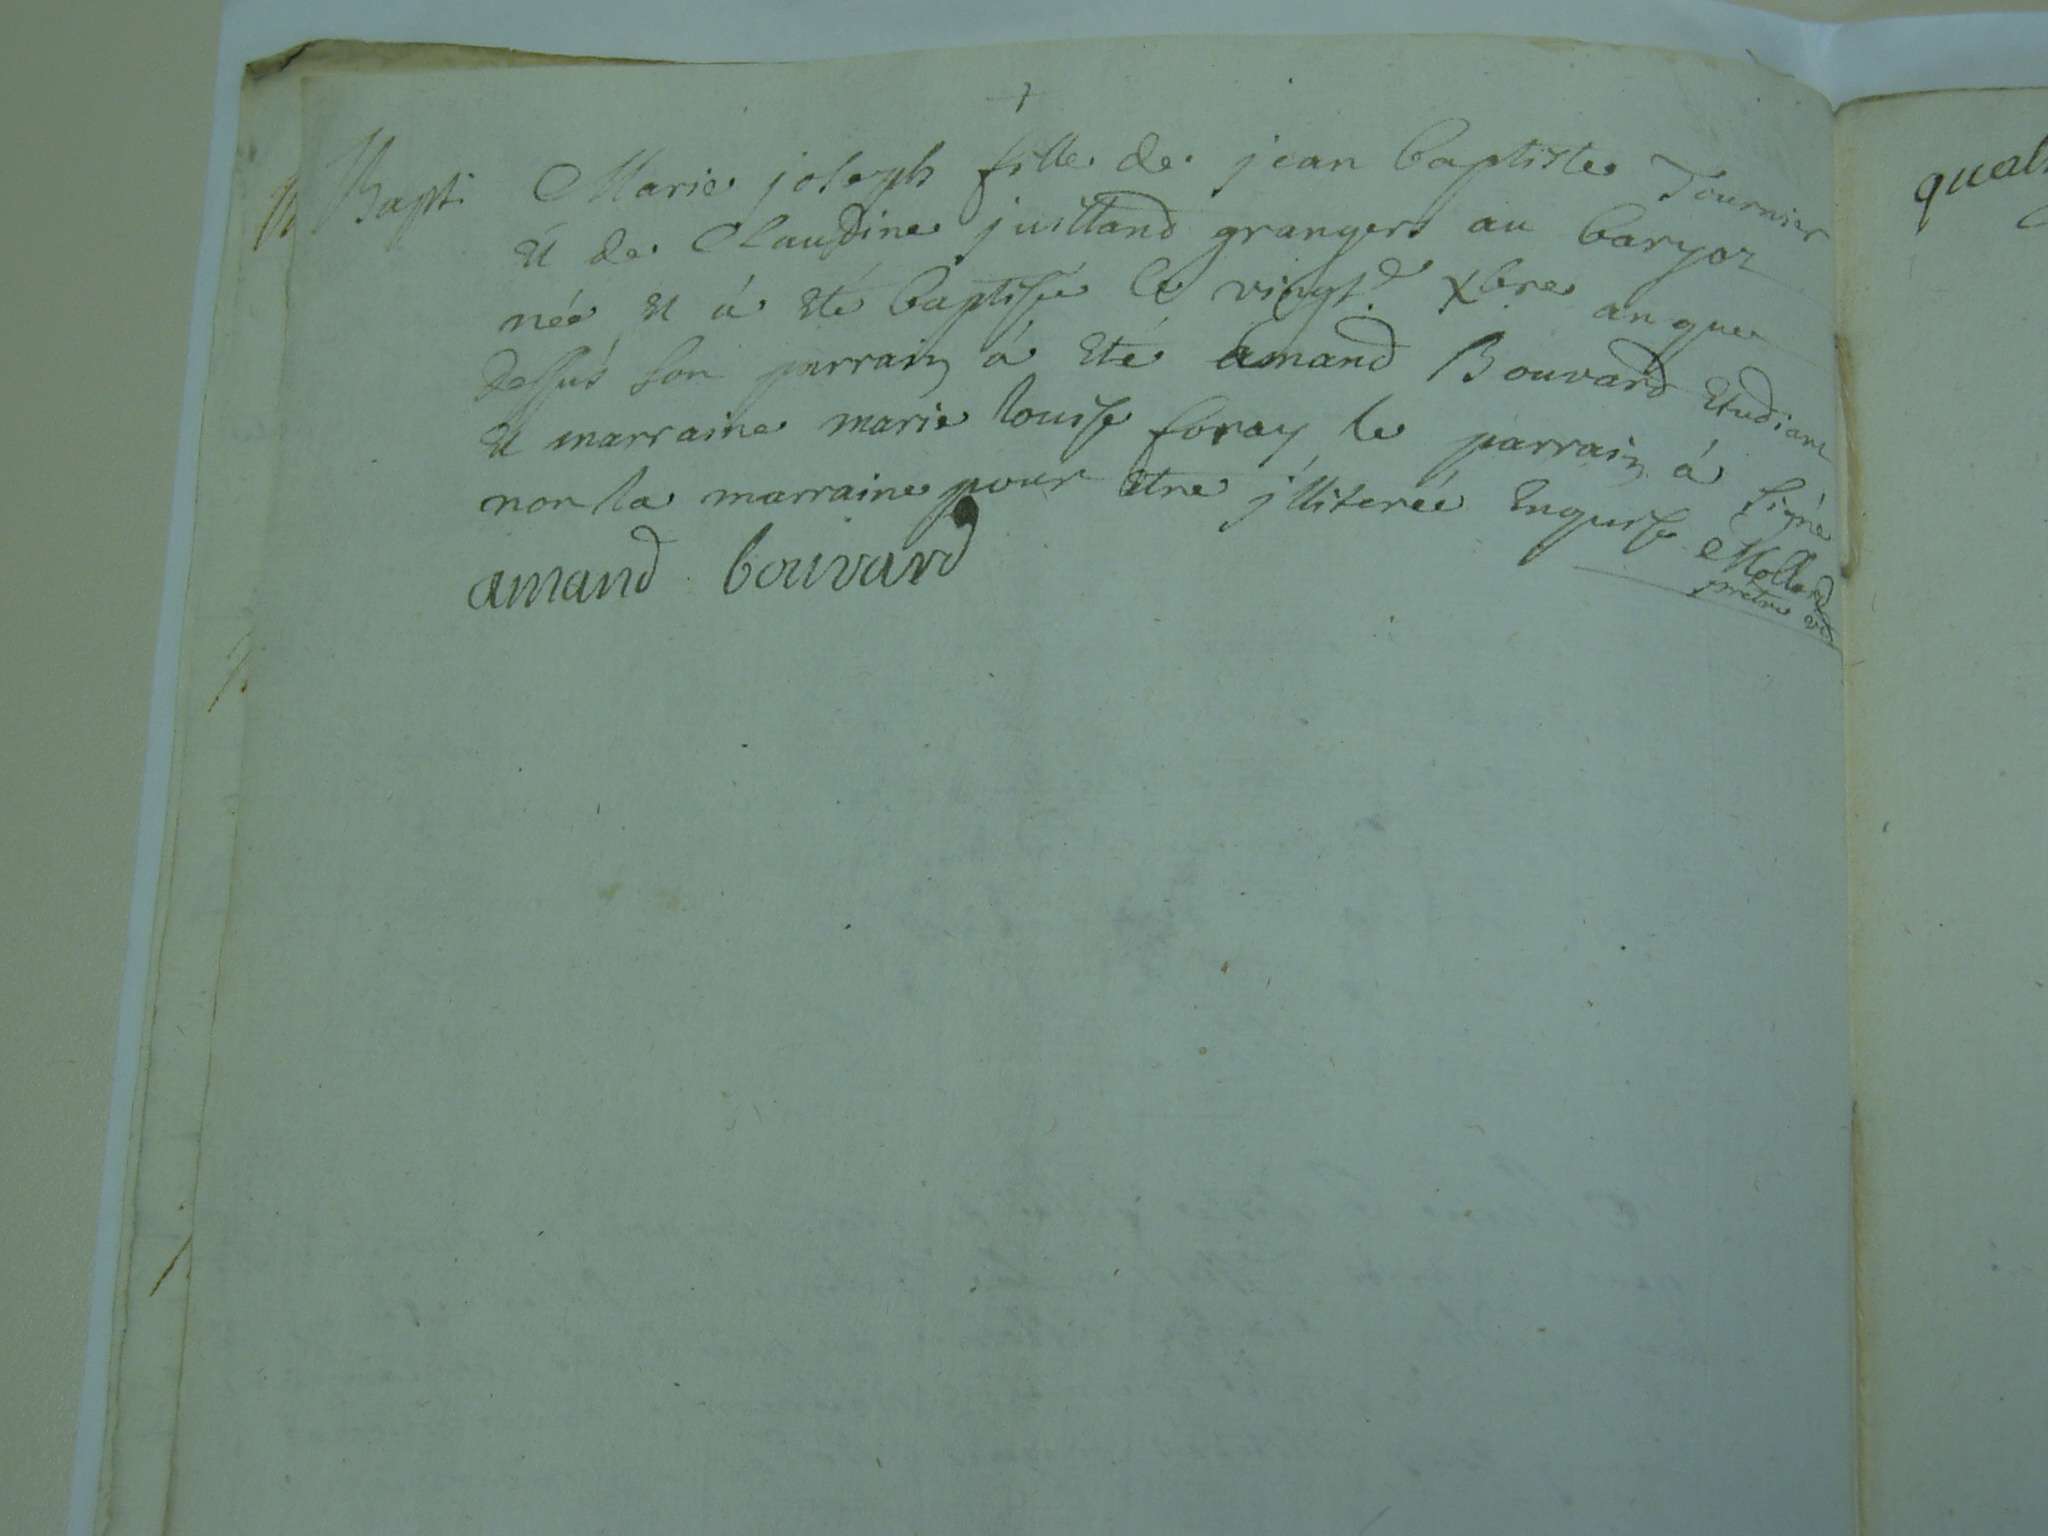 Bapt. Marie joseph fille de jean baptiste Tournier
et de Claudine juilland grangers au baryoz
née et á été baptisée le vingt.e xbre an que
dessus son parrain á été amand Bouvard Etudiant
et marraine marie louise foray le parrain á signé
non la marraine pour être jlliterée Enquise Mollard
prêtre
amand bouvard